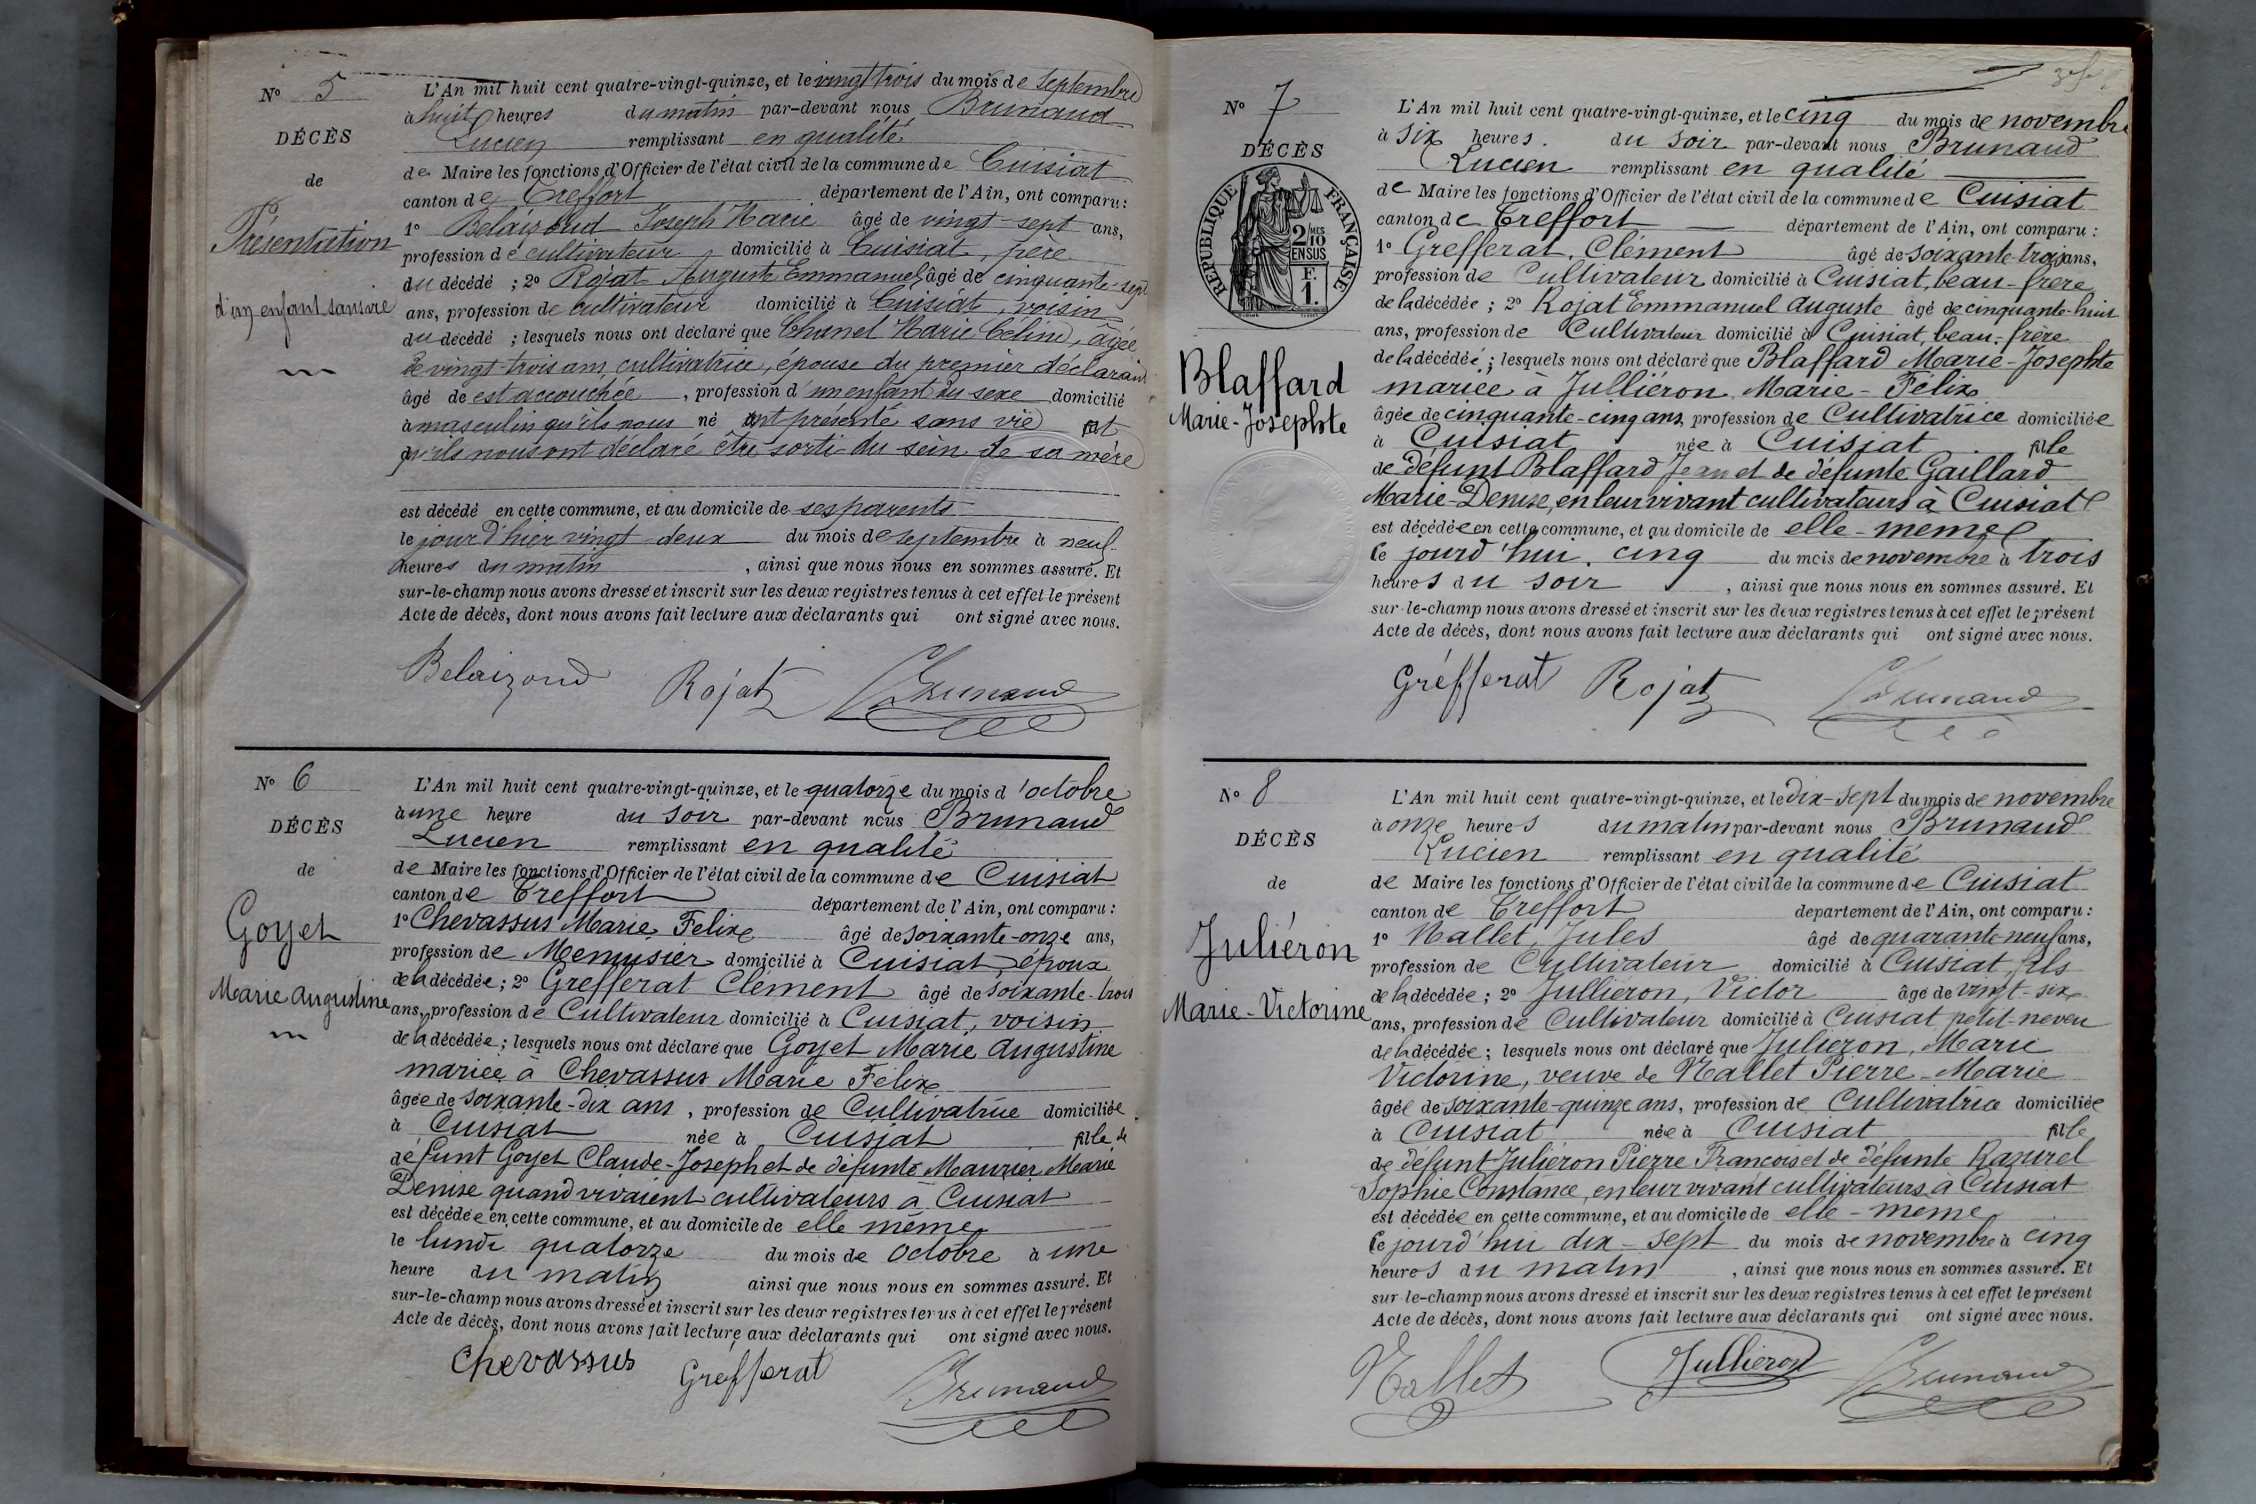 N° 5
DÉCÈS
de
Présentation
d'un enfant sans vie
L'An mil huit cent quatre-vingt-quinze, et le vingt trois du mois de septembre
à huit heures du matin par-devant nous Brunaud
Lucien remplissant en qualité
de Maire les fonctions d'Officier de l'état civil de la commune de Cuisiat
canton de Treffort département de l'Ain, ont comparu :
1° Belaizoud Joseph Marie âgé de vingt-sept ans,
profession de cultivateur domicilié à Cuisiat, père
du décédé ; 2° Rojat Auguste Emmanuel, âgé de cinquante-sept
ans, profession de cultivateur domicilié à Cuisiat, voisin
du décédé ; lesquels nous ont déclaré que Chanel Marie Celine, âgée
de vingt-trois ans, cultivatrice, épouse du premier déclarant
âgé de est accouchée , profession d'un enfant du sexe domicilié
à masculin qu'ils nous né ont présenté sans vie et
qu'ils nous ont déclaré être sorti du sein de sa mère
est décédé en cette commune, et au domicile de ses parents
le jour d'hier vingt deux du mois de septembre à neuf
heures du matin , ainsi que nous nous en sommes assuré. Et
sur-le-champ nous avons dressé et inscrit sur les deux registres tenus à cet effet le présent
Acte de décès, dont nous avons fait lecture aux déclarants qui ont signé avec nous.
Belaizoud Rojat Brunaud
N° 6
DÉCÈS
de
Goyet
Marie Augustine
L'An mil huit cent quatre-vingt-quinze, et le quatorze du mois d'octobre
à une heure du soir par-devant nous Brunaud
Lucien remplissant en qualité
de Maire les fonctions d'Officier de l'état civil de la commune de Cuisiat
canton de Treffort département de l'Ain, ont comparu :
1° Chevassus Marie Felix âgé de soixante-onze ans,
profession de Menuisier domicilié à Cuisiat, époux
de la décédée ; 2° Grefferat Clement âgé de soixante-trois
ans, profession de Cultivateur domicilié à Cuisiat, voisin
de la décédée ; lesquels nous ont déclaré que Goyet Marie Augustine
mariée à Chevassus Marie Félix
âgée de soixante-dix ans , profession de Cultivatrice domiciliée
à Cuisiat née à Cuisiat fille de
défunt Goyet Claude-Joseph et de défunte Maurier Marie
Denise quand vivaient cultivateurs à Cuisiat
est décédée en cette commune, et au domicile de elle même
le lundi quatorze du mois de octobre à une
heure du matin ainsi que nous nous en sommes assuré. Et
sur-le-champ nous avons dressé et inscrit sur les deux registres tenus à cet effet le présent
Acte de décès, dont nous avons fait lecture aux déclarants qui ont signé avec nous.
Chevassus Grefferat Brunaud
N° 7
DÉCÈS
RÉPUBLIQUE FRANÇAISE
2/10 MES
EN SUS
F.
1.
Blaffard
Marie-Josephte
L'An mil huit cent quatre-vingt-quinze, et le cinq du mois de novembre
à six heures du soir par-devant nous Brunaud
Lucien remplissant en qualité
de Maire les fonctions d'Officier de l'état civil de la commune de Cuisiat
canton de Treffort département de l'Ain, ont comparu :
1° Grefferat, Clément âgé de soixante-trois ans,
profession de Cultivateur domicilié à Cuisiat, beau-frère
de la décédée ; 2° Rojat Emmanuel Auguste âgé de cinquante-huit
ans, profession de Cultivateur domicilié à Cuisiat, beau-frère
de la décédée ; lesquels nous ont déclaré que Blaffard Marie-Josephte
mariée à Julliéron Marie-Félix
âgée de cinquante-cinq ans, profession de Cultivatrice domiciliée
à Cuisiat née à Cuisiat fille
de défunt Blaffard Jean et de défunte Gaillard
Marie-Denise, en leur vivant cultivateurs à Cuisiat
est décédée en cette commune, et au domicile de elle-même
le jourd'hui cinq du mois de novembre à trois
heures du soir , ainsi que nous nous en sommes assuré. Et
sur-le-champ nous avons dressé et inscrit sur les deux registres tenus à cet effet le présent
Acte de décès, dont nous avons fait lecture aux déclarants qui ont signé avec nous.
Gréfferat Rojat Brunaud
N° 8
DÉCÈS
de
Juliéron
Marie-Victorine
L'An mil huit cent quatre-vingt-quinze, et le dix-sept du mois de novembre
à onze heures du matin par-devant nous Brunaud
Lucien remplissant en qualité
de Maire les fonctions d'Officier de l'état civil de la commune de Cuisiat
canton de Treffort département de l'Ain, ont comparu :
1° Nallet, Jules âgé de quarante-neuf ans,
profession de Cultivateur domicilié à Cuisiat, fils
de la décédée ; 2° Jullieron, Victor âgé de vingt-six
ans, profession de Cultivateur domicilié à Cuisiat petit-neveu
de la décédée ; lesquels nous ont déclaré que Julieron, Marie
Victorine, veuve de Nallet Pierre-Marie
âgée de soixante-quinze ans, profession de Cultivatrice domiciliée
à Cuisiat née à Cuisiat fille
de défunt Juliéron Pierre François et de défunte Razurel
Sophie Constance, en leur vivant cultivateurs à Cuisiat
est décédée en cette commune, et au domicile de elle-même
le jourd'hui dix-sept du mois de novembre à cinq
heures du matin , ainsi que nous nous en sommes assuré. Et
sur-le-champ nous avons dressé et inscrit sur les deux registres tenus à cet effet le présent
Acte de décès, dont nous avons fait lecture aux déclarants qui ont signé avec nous.
Nallet Jullieron Brunaud